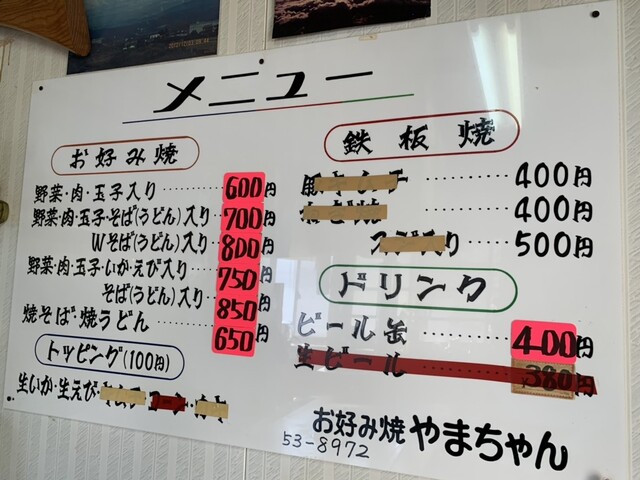 メニュー
お好み焼
野菜・肉・玉子入り………600円
野菜・肉・玉子・そば(うどん)入り…700円
Wそば(うどん)入り…800円
野菜・肉・玉子・いか・えび入り…750円
そば(うどん)入り…850円
焼そば・焼うどん………650円
トッピング(100円)
生いか・生えび・
鉄板焼
400円
400円
500円
ドリンク
ビール缶………400円
生ビール………¥380円
お好み焼 やまちゃん
53-8972